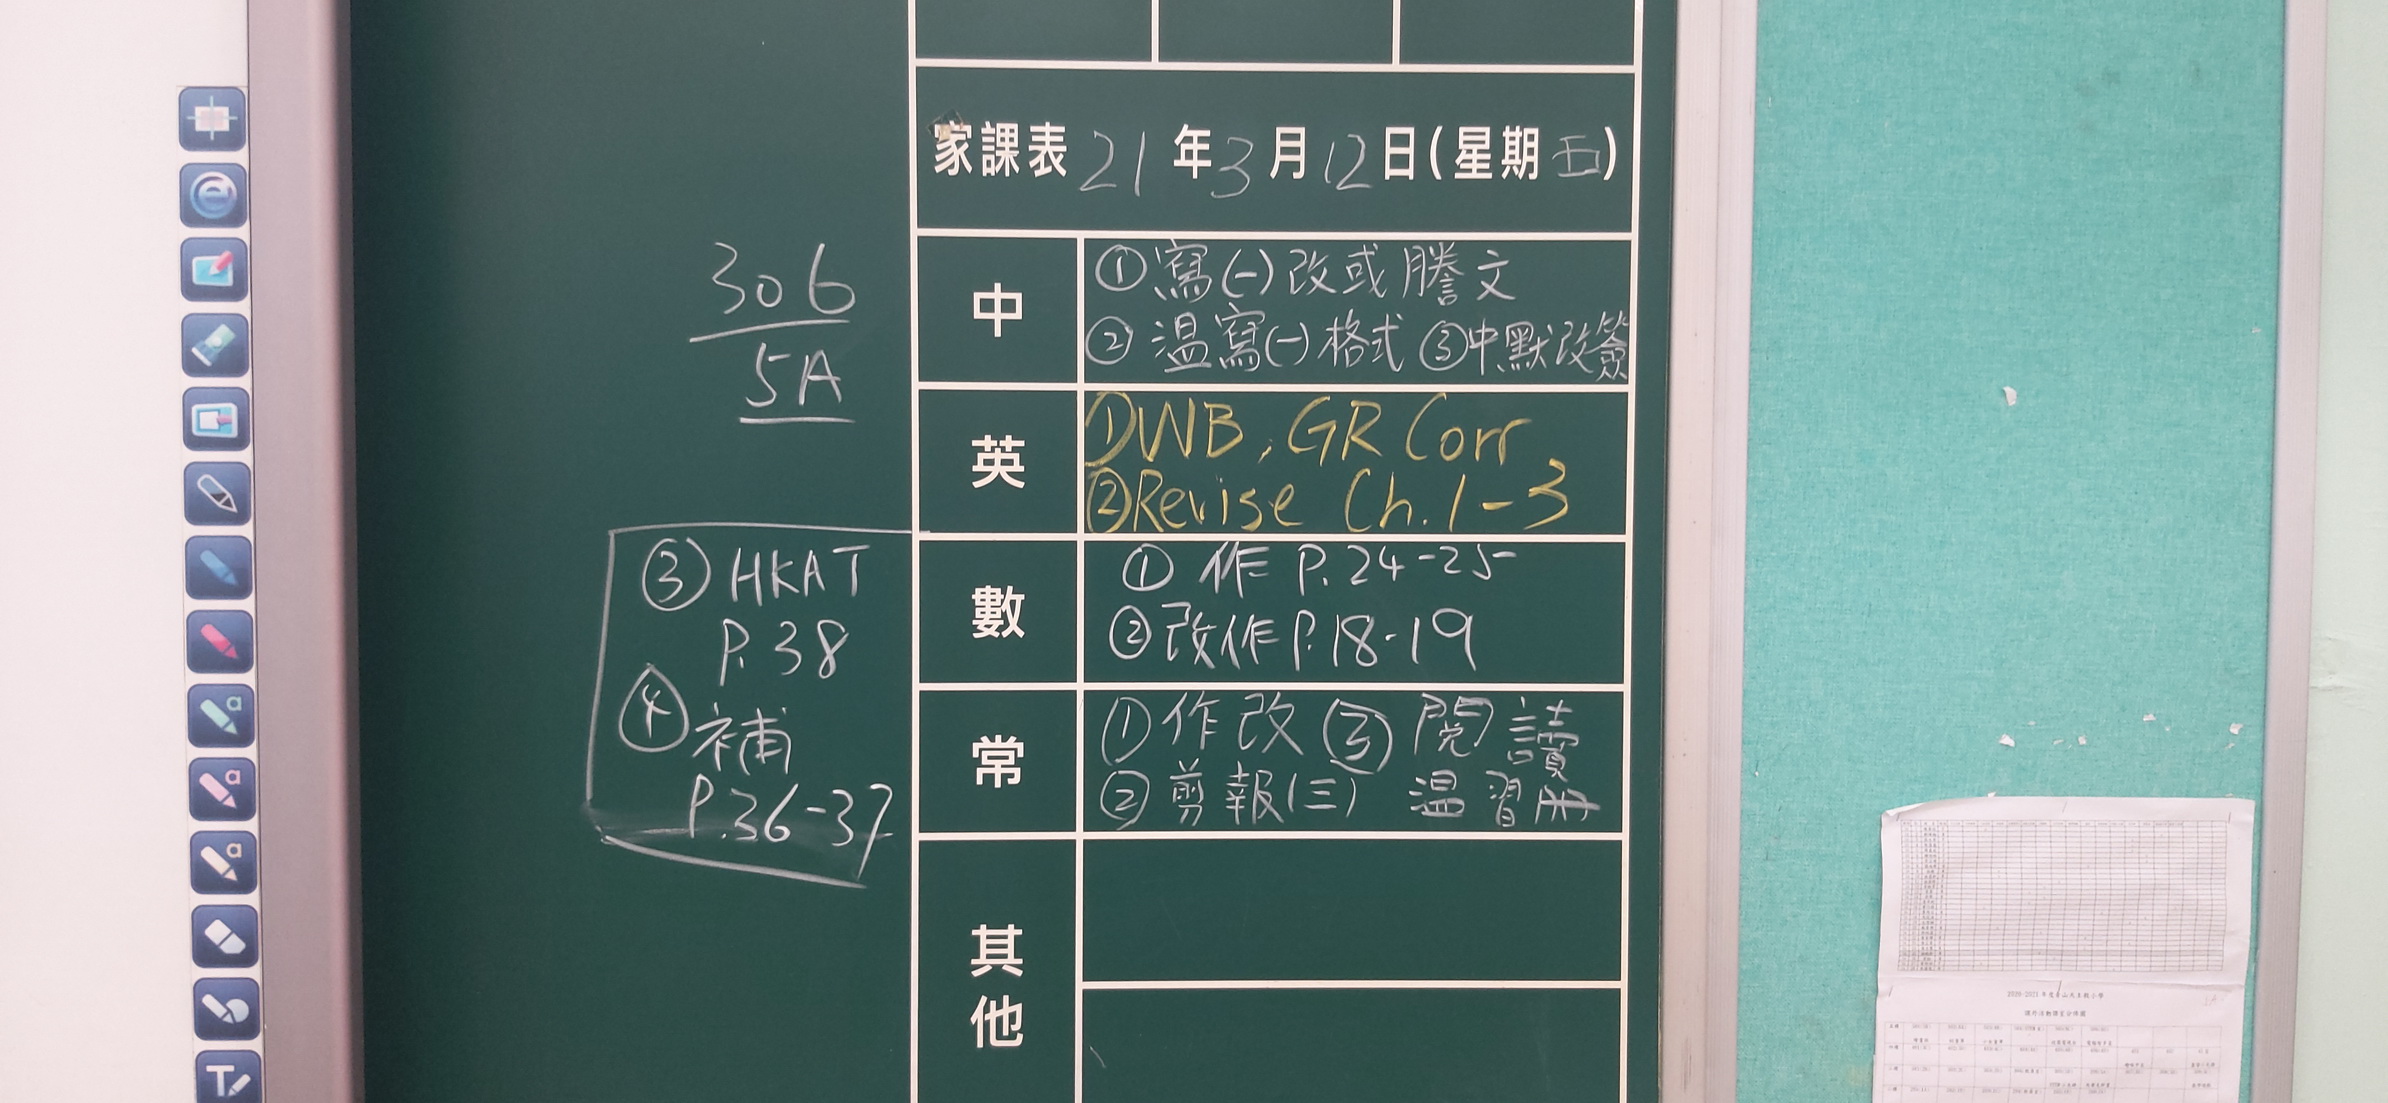 家課表 21 年 3 月 12 日(星期五)
306
5A
中
① 寫(一)改或謄文
② 溫寫(一)格式 ③中默改簽
英
① WB, GR Corr
② Revise Ch. 1-3
數
① 作 P. 24-25
② 改作 P. 18-19
③ HKAT
P. 38
④ 補
P. 36-37
常
① 作改 ③ 閱讀
② 剪報(三) 溫習冊
其他